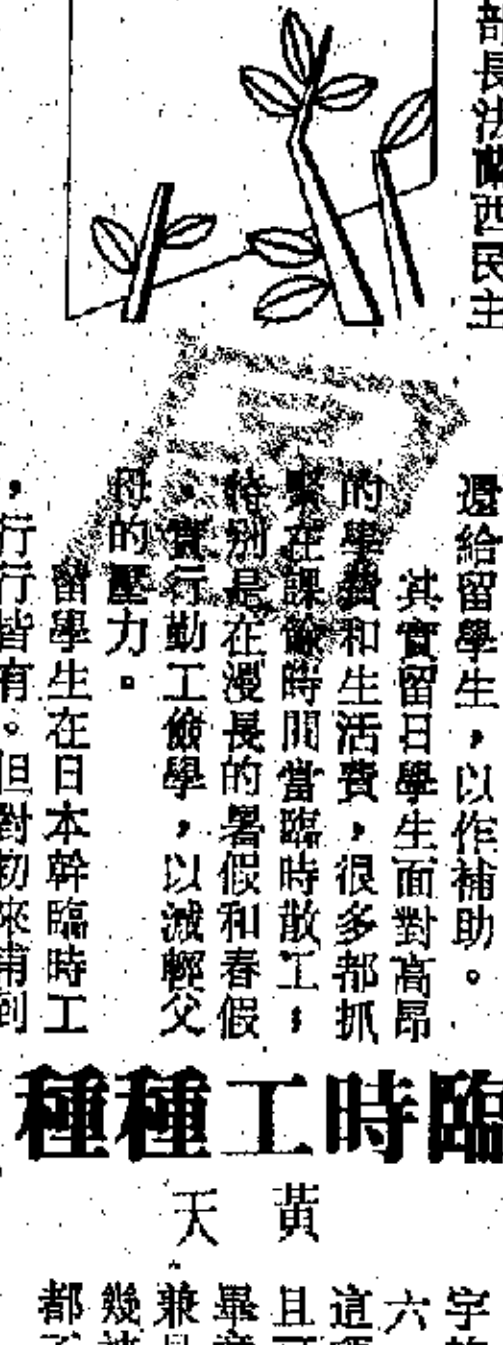 部長法蘭西民主
還給留學生，以作補助。
其實留日學生面對高昂
的學費和生活費，很多都抓
緊在課餘時間當臨時散工，
特別是在漫長的暑假和春假
，實行勤工儉學，以減輕父
母的壓力。
留學生在日本幹臨時工
，行行皆有。但對初來甫到
臨時工種種
黃天
宇
六
這
且
畢
兼
幾
都